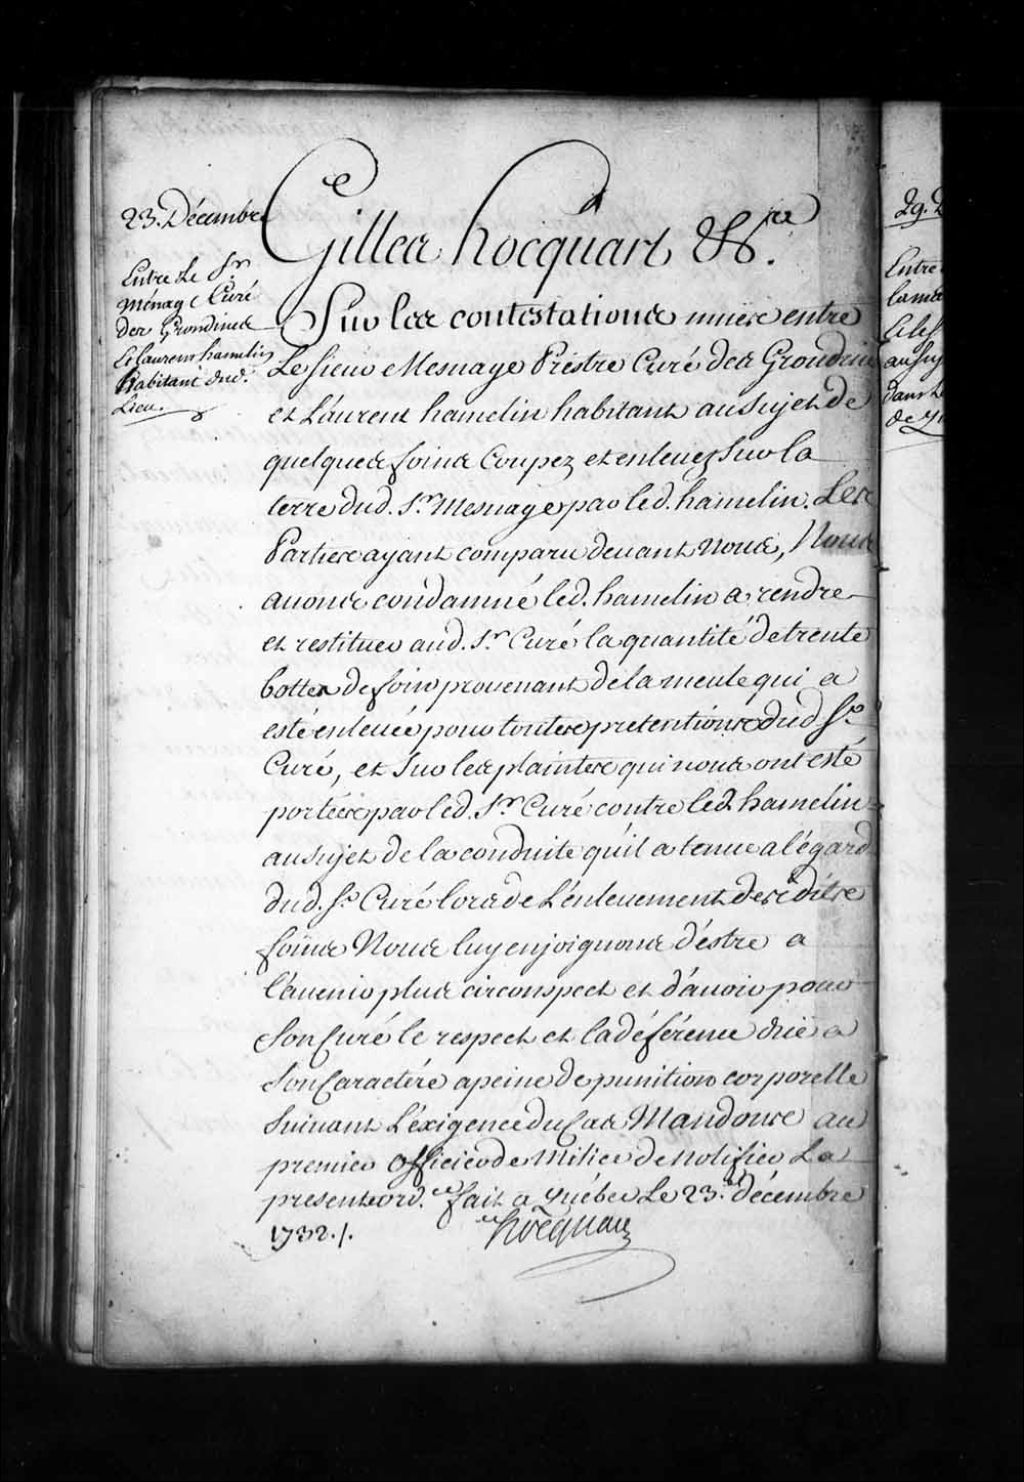 23. Décembre
Entre Le Sr.
Ménage Curé
des Grondines
Et laurens hamelin
habitant dud.
Lieu.
Gilles hocquart &c.
Sur les contestations mües entre
Le sieur Mesnage Prestre Curé des Grondines
et Laurent hamelin habitant au Sujet de
quelques foins Coupez et enleuez Sur la
terre dud. Sr. Mesnage par led. hamelin. Les
Parties ayant comparu deuant Nous, Nous
auons condamné led. hamelin a rendre
et restituer aud. Sr. Curé la quantité de trente
bottes de foin prouenant de la meule qui a
esté enleuée pour toutes pretentions dud Sr.
Curé, et Sur les plaintes qui nous ont esté
portées par led. Sr. Curé contre led. hamelin
au sujet de la conduite qu'il a tenue a l'égard
dud. Sr. Curé lors de L'enleuement desdites
foins Nous luy enjoignons d'éstre a
l'auenir plus circonspect et d'auoir pour
Son Curé le respect et la déférence düe a
Son Caractére a peine de punition corporelle
Suiuant L'éxigence du Cas Mandons au
premier officier de Milice de Notifier La
presente ord.ce fait a Québec Le 23. décembre
1732./.
hocquart
29.
Entre
Et les
au suj
dans L